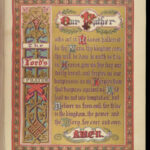 Our Father
The
Lord's
Prayer
who art in Heaven, hallowed
be thy Name, thy kingdom come,
thy will be done in earth as it is in
Heaven, give us this day our
daily bread, and forgive us our
trespasses as we forgive them
that trespass against us,
lead us not into temptation, but
deliver us from evil, for thine
is the kingdom, the power, and
the Glory, for ever and ever.
AMEN.